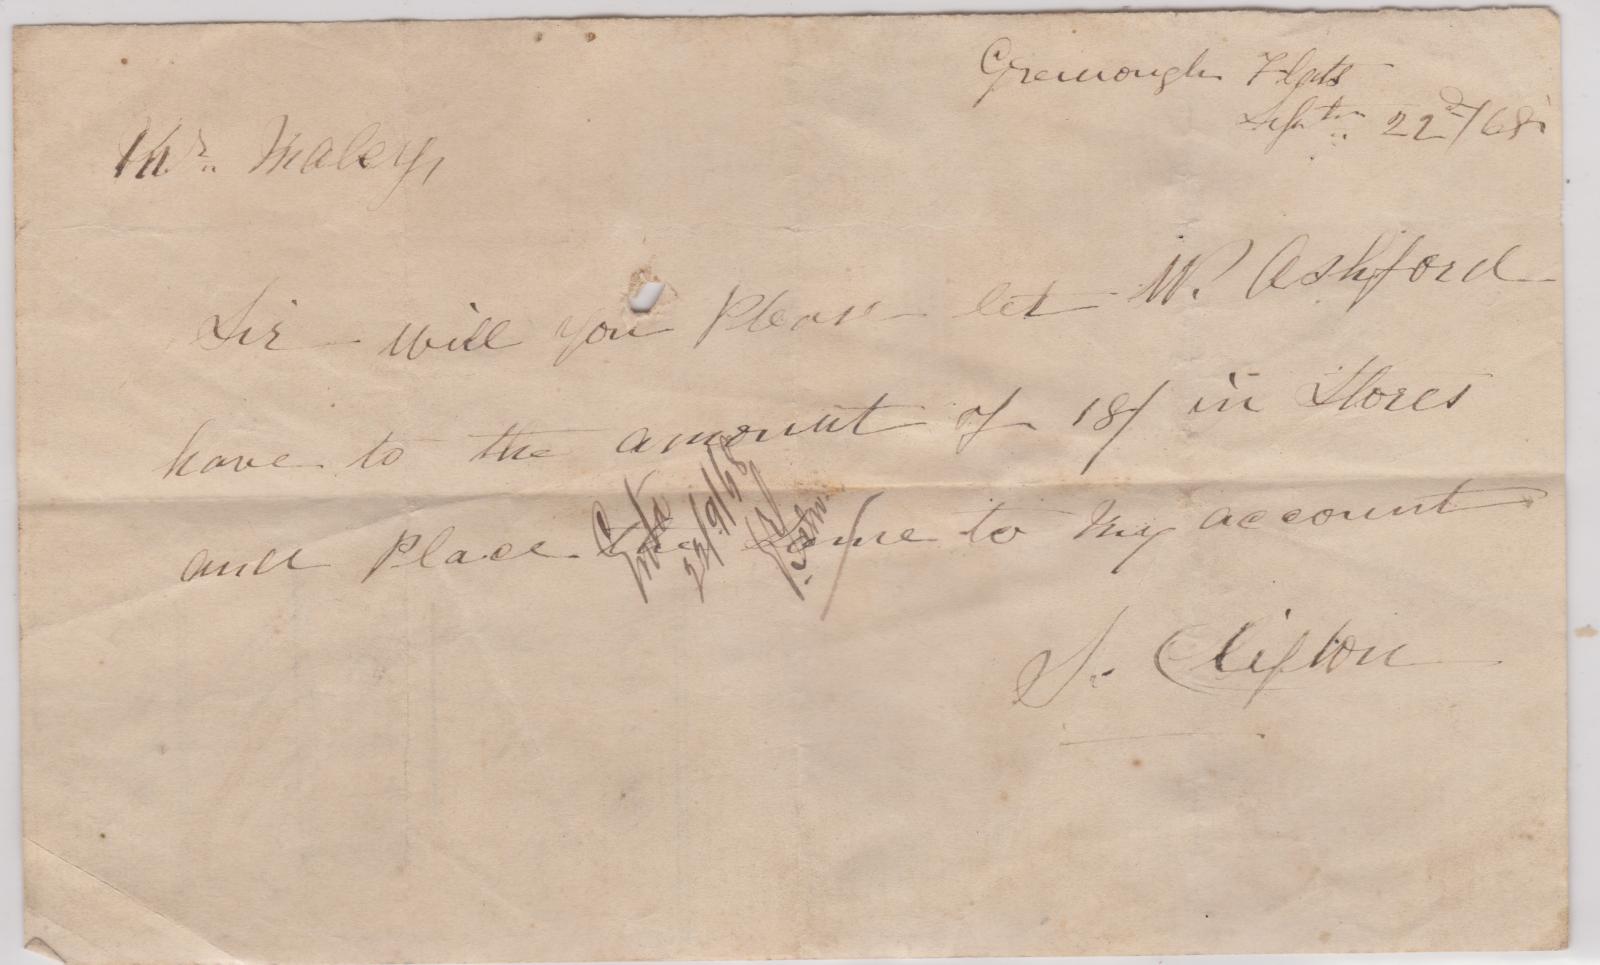 Greenough Flats
Septr 22d/68
Mr. Maley,
Sir - will you Please let W. Ashford
have to the amount of 18/ in Stores
and Place the Same to my account
S. Clifton
Entd
22/9/68